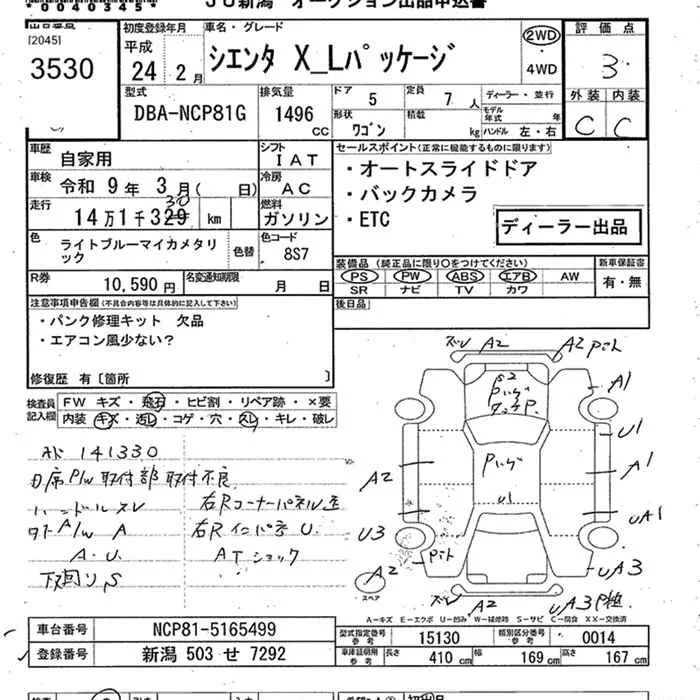 00403450 JU新潟 オークション出品申込書
出品番号
[2045]
3530
初度登録年月
平成
24 年 2 月
車名・グレード
シエンタ X_Lパッケージ
2WD
4WD
評価点
3
外装 内装
C C
型式
DBA-NCP81G
排気量
1496 CC
ドア 5
定員 7 人
形状 ワゴン
積載 kg
ディーラー・並行
モデル年式 年
ハンドル 左・右
車歴 自家用
シフト IAT
車検 令和 9 年 3 月 ( 日)
冷房 AC
走行 14万1千329 km
30
燃料 ガソリン
色 ライトブルーマイカメタリック
色替
色コード 8S7
R券 10,590 円
名変通知期限 月 日
セールスポイント(正常に機能するものに限ります)
・オートスライドドア
・バックカメラ
・ETC
ディーラー出品
装備品(純正品に限り○をつけてください)
PS PW ABS エアB AW
SR ナビ TV カワ
新車保証書
有・無
後日品
注意事項申告欄(不具合内容等は具体的に記入して下さい)
・パンク修理キット 欠品
・エアコン風少ない?
修復歴 有〔箇所 〕
検査員記入欄
FW キズ・飛石・ヒビ割・リペア跡・×要
内装 キズ・汚レ・コゲ・穴・スレ・キレ・破レ
141330
P/W 取付部 取付不良
ハンドルスレ 右Rコーナーパネル歪
A/w A 右R インパネ U.
A.U. ATショック
下回りS
ズレ A2 A2 P
S2
A1
U1
A1
uA1
uA3
A2
U3
A2
スペア
U1
ズレ A2 uA3
A-キズ E-エクボ U-凹み W-補修跡 S-サビ C-腐食 X・XX-交換済
車台番号 NCP81-5165499
登録番号 新潟 503 せ 7292
型式指定番号 参考 15130
類別区分番号 参考 0014
車庫証明用 参考 長さ 410 cm 幅 169 cm 高さ 167 cm